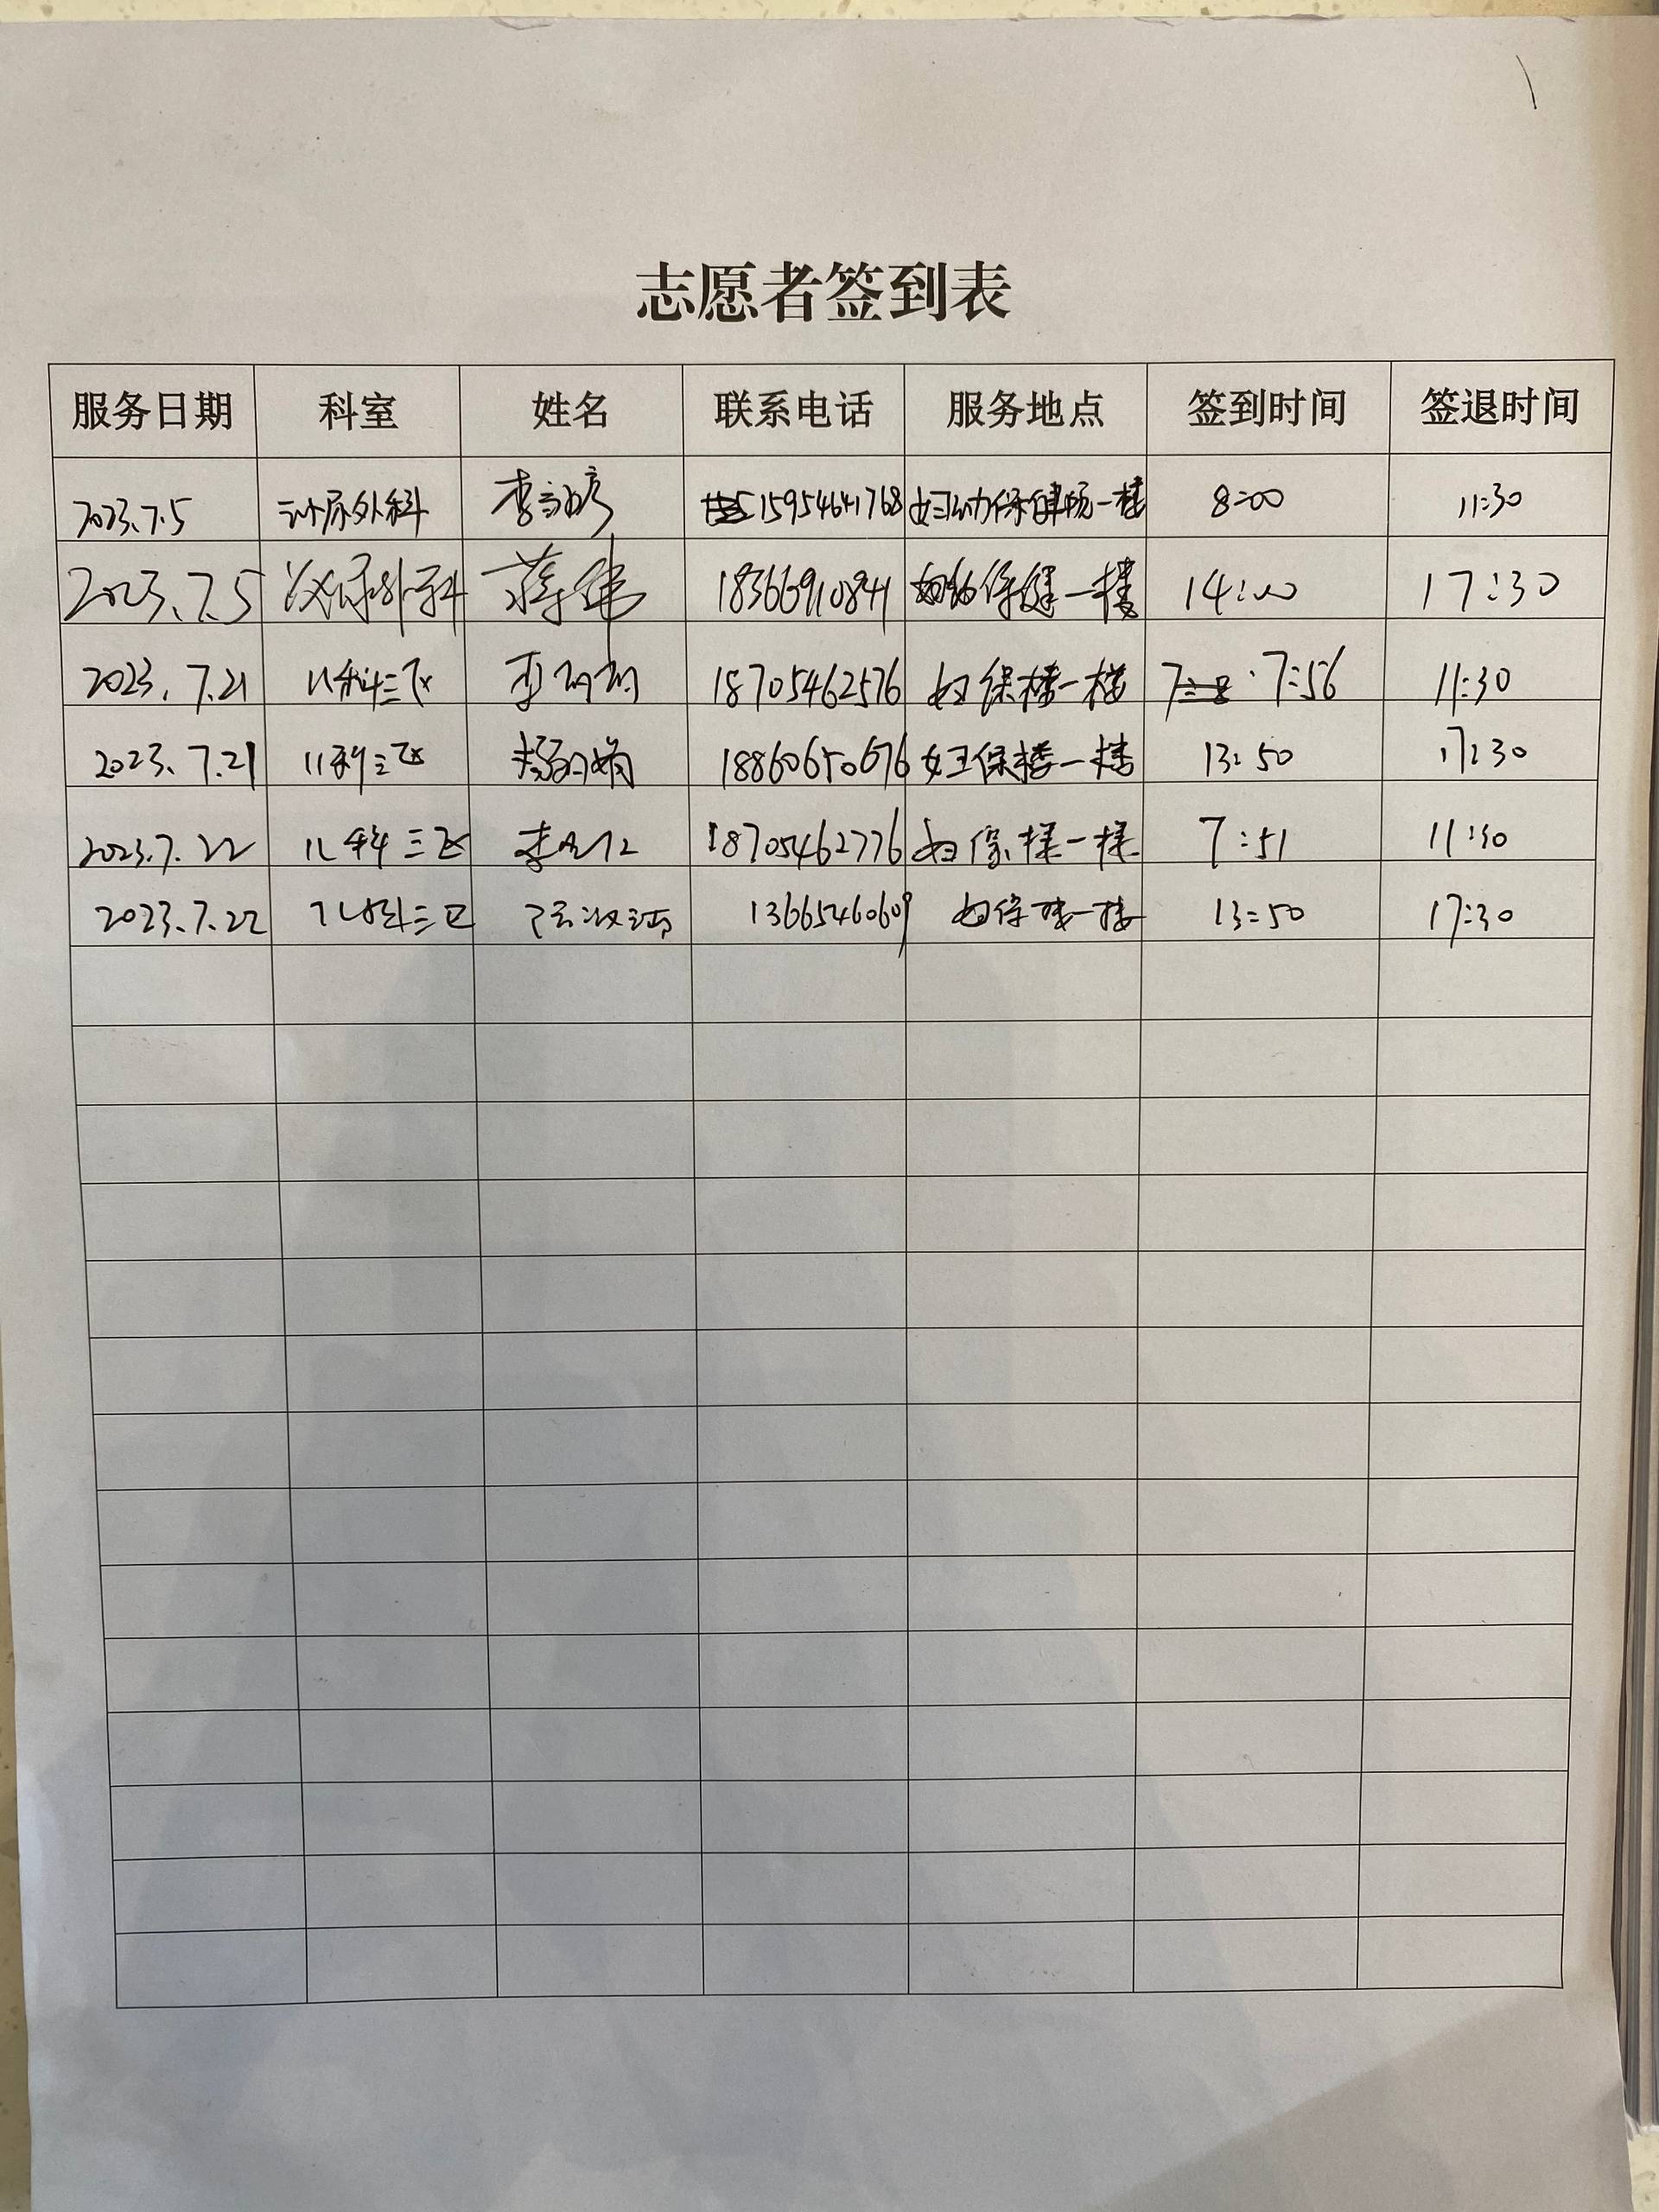 志愿者签到表
服务日期 科室 姓名 联系电话 服务地点 签到时间 签退时间
2023.7.5 泌尿外科 李 15954641768 妇幼保健院一楼 8:00 11:30
2023.7.5 泌尿外科 蒋伟 18366910841 妇幼保健一楼 14:00 17:30
2023.7.21 儿科三区 李 18705462576 妇保楼一楼 7:56 11:30
2023.7.21 儿科三区 杨娟 18860650676 妇保楼一楼 13:50 17:30
2023.7.22 儿科三区 李 18705462776 妇保楼一楼 7:51 11:30
2023.7.22 儿科三区 13665460609 妇保楼一楼 13:50 17:30